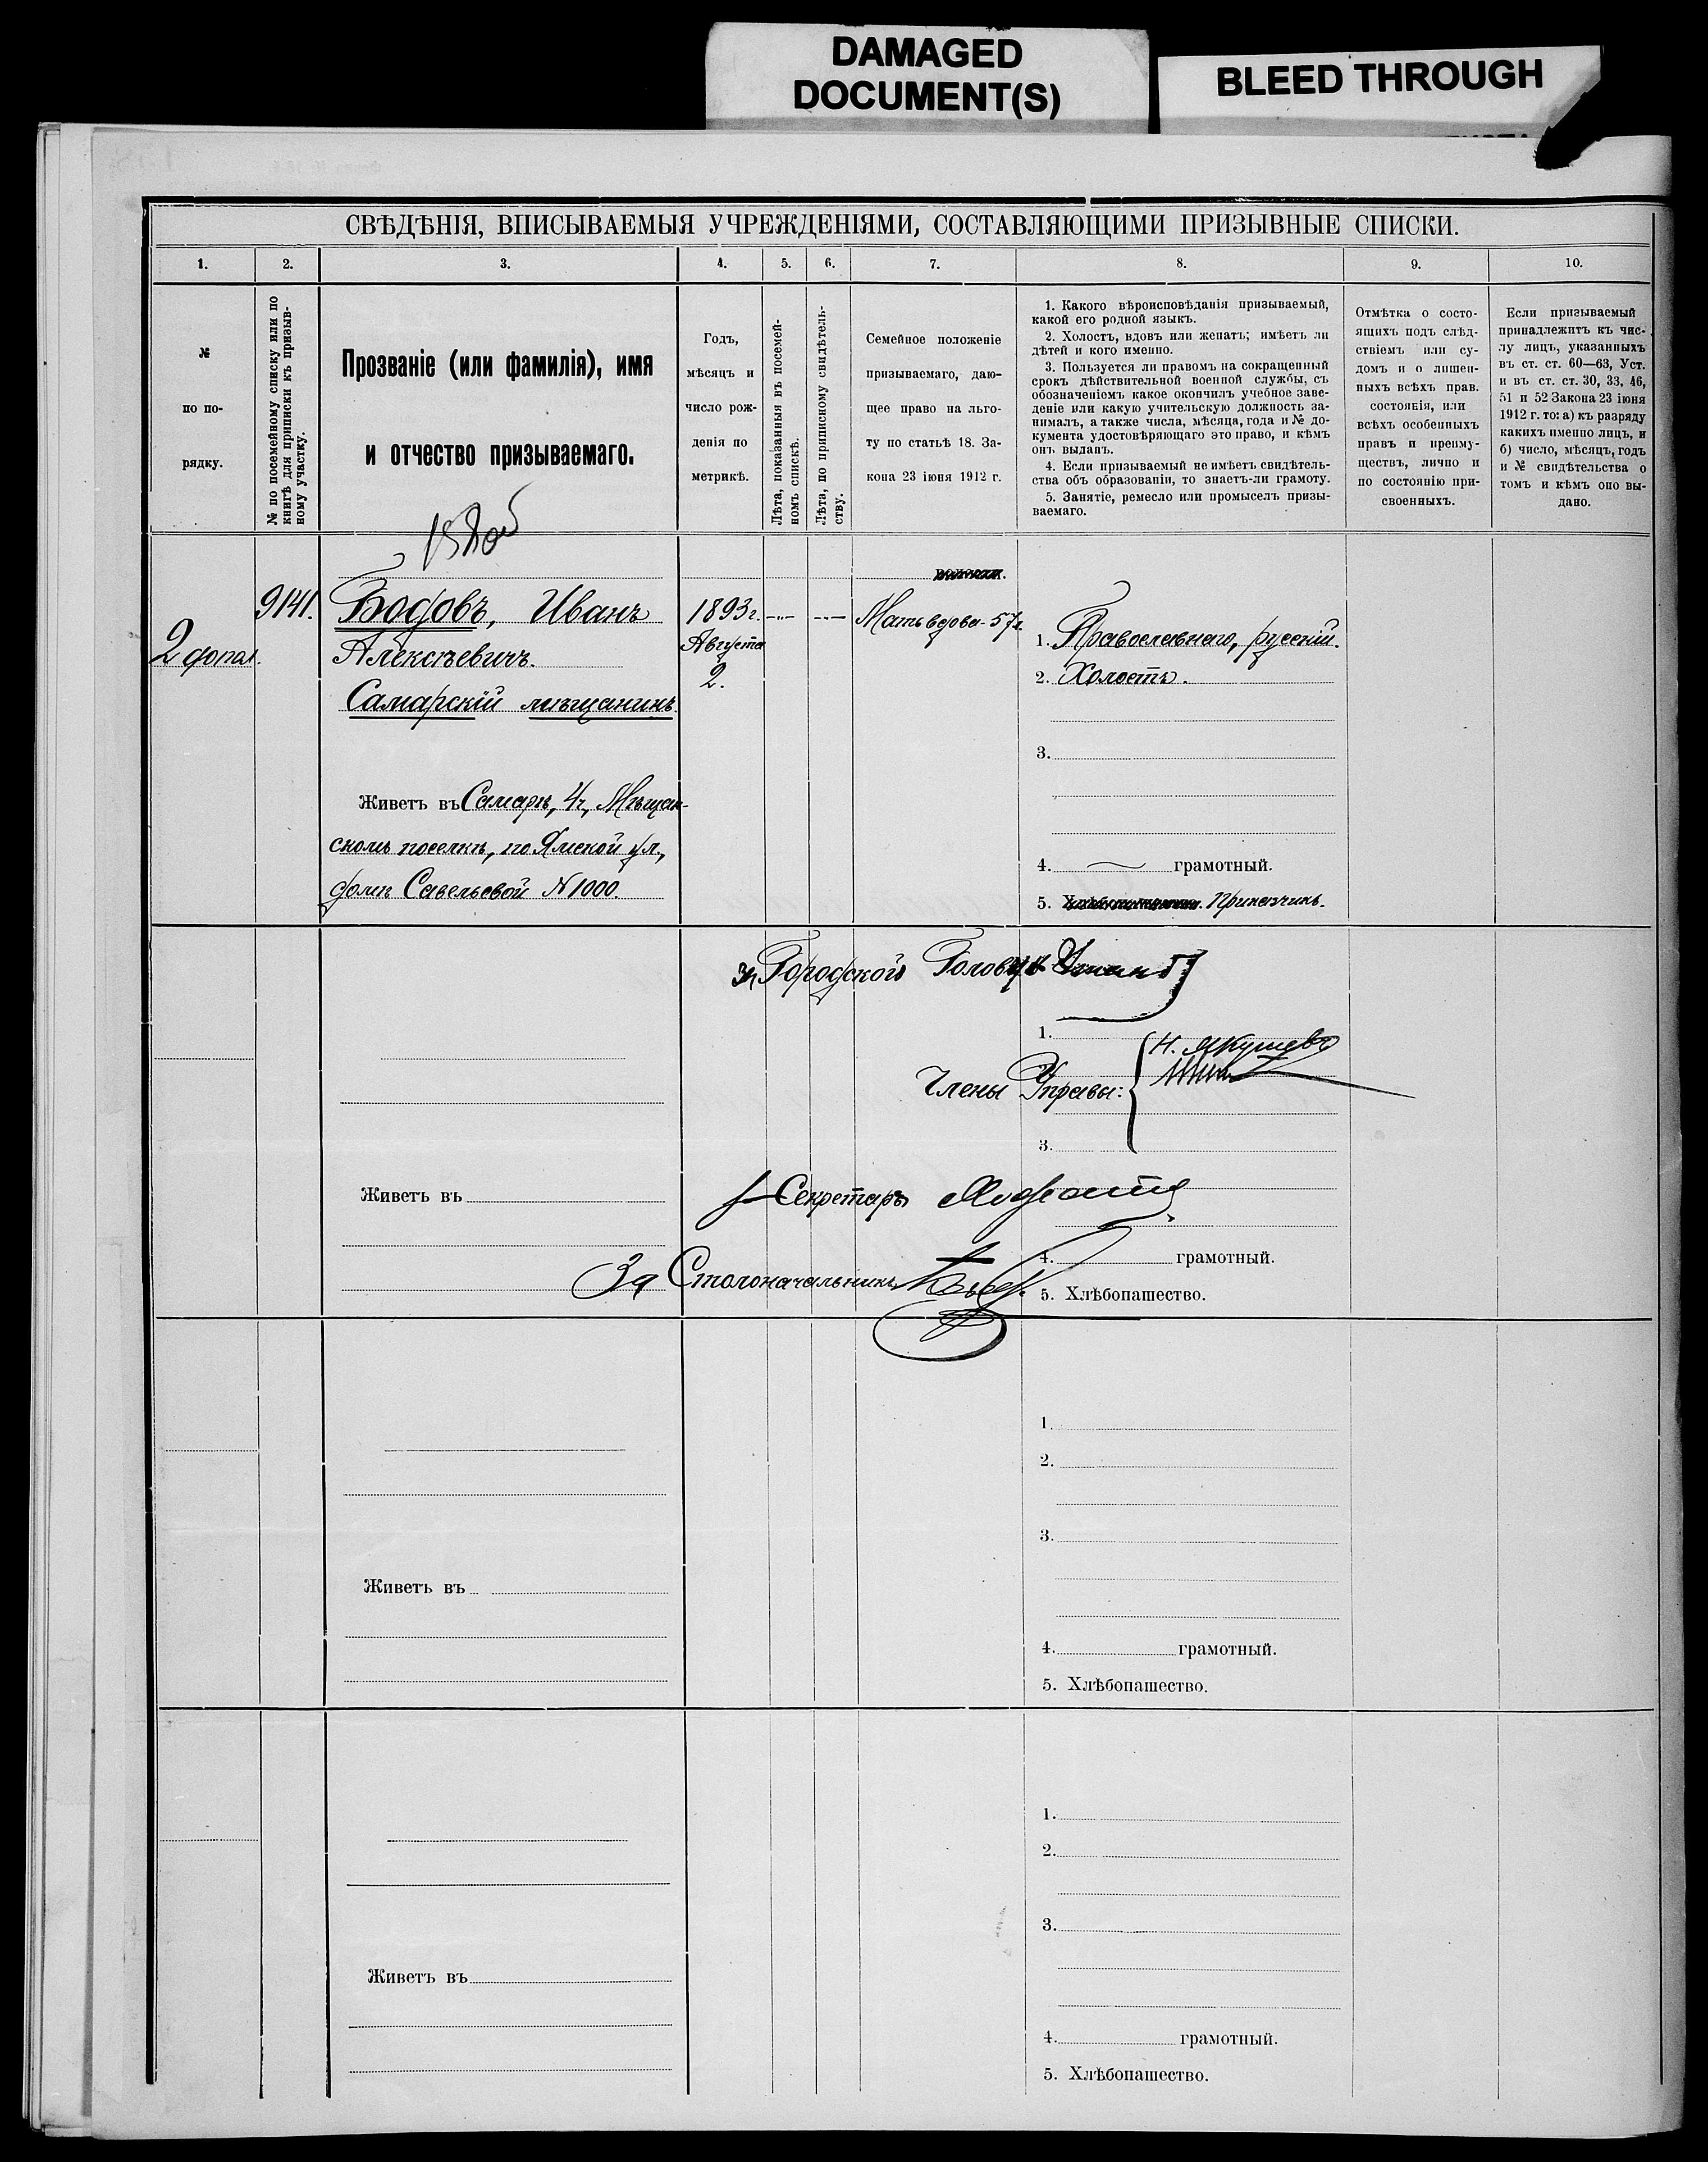 DAMAGED
DOCUMENT(S)
BLEED THROUGH
СВѢДѢНІЯ, ВПИСЫВАЕМЫЯ УЧРЕЖДЕНІЯМИ, СОСТАВЛЯЮЩИМИ ПРИЗЫВНЫЕ СПИСКИ.
1.
2.
3.
4.
5.
6.
7.
8.
9.
10.
№
по по-
рядку.
№ по посемейному списку или по
книгѣ для приписки къ призыв-
ному участку.
Прозваніе (или фамилія), имя
и отчество призываемаго.
Годъ,
мѣсяцъ и
число рож-
денія по
метрикѣ.
Лѣта, показанныя въ посемей-
номъ спискѣ.
Лѣта, по приписному свидѣтель-
ству.
Семейное положеніе
призываемаго, даю-
щее право на льго-
ту по статьѣ 18. За-
кона 23 іюня 1912 г.
1. Какого вѣроисповѣданія призываемый,
какой его родной языкъ.
2. Холостъ, вдовъ или женатъ; имѣетъ ли
дѣтей и кого именно.
3. Пользуется ли правомъ на сокращенный
срокъ дѣйствительной военной службы, съ
обозначеніемъ какое окончилъ учебное заве-
деніе или какую учительскую должность за-
нималъ, а также числа, мѣсяца, года и № до-
кумента удостовѣряющаго это право, и кѣмъ
онъ выданъ.
4. Если призываемый не имѣетъ свидѣтель-
ства объ образованіи, то знаетъ-ли грамоту.
5. Занятіе, ремесло или промыселъ призы-
ваемаго.
Отмѣтка о состо-
ящихъ подъ слѣд-
ствіемъ или су-
домъ и о лишен-
ныхъ всѣхъ прав.
состоянія, или
всѣхъ особенныхъ
правъ и преиму-
ществъ, лично и
по состоянію при-
своенныхъ.
Если призываемый
принадлежитъ къ чис-
лу лицъ, указанныхъ
въ ст. ст. 60—63, Уст.
и въ ст. ст. 30, 33, 46,
51 и 52 Закона 23 іюня
1912 г. то: а) къ разряду
какихъ именно лицъ, и
б) число, мѣсяцъ, годъ
и № свидѣтельства о
томъ и кѣмъ оно вы-
дано.
2 допол.
9141.
Бодовъ, Иванъ
Алексѣевичъ.
Самарскій мѣщанинъ.
Живетъ въ Самарѣ, 4ч, Мѣщан-
скомъ поселкѣ, по Ямской ул.,
домъ Савельевой № 1000.
1893г.
Августа
2.
волости.
1. Православнаго, русскій.
2. Холостъ.
3.
4. грамотный.
5. Хлѣбопашество. Приказчикъ.
Городской Голова
1.
Члены Управы:
Н. Якушевъ
3.
Секретарь
За Столоначальника
Живетъ въ
4. грамотный.
5. Хлѣбопашество.
1.
2.
3.
Живетъ въ
4. грамотный.
5. Хлѣбопашество.
1.
2.
3.
Живетъ въ
4. грамотный.
5. Хлѣбопашество.